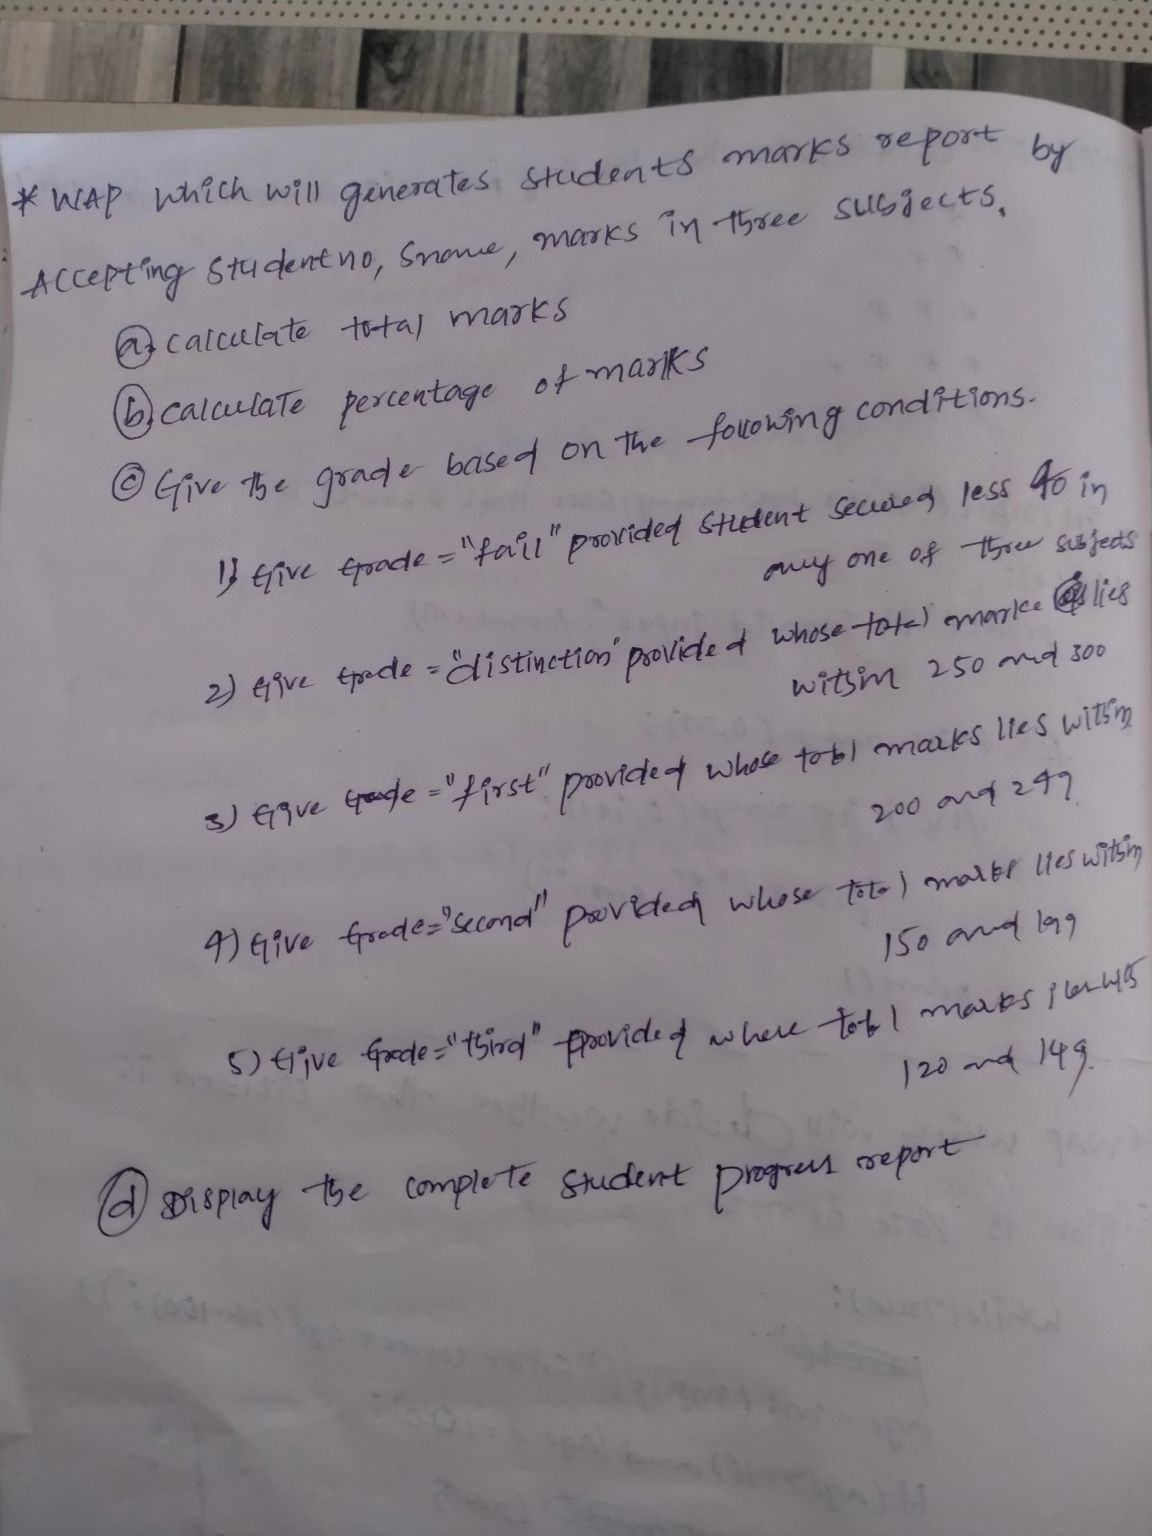 * WAP which will generates students marks report by
Accepting Studentno, Sname, marks in three subjects.
(a) calculate total marks
(b) calculate percentage of marks
(c) Give the grade based on the following conditions.
1) Give Grade = "fail" provided student secured less 40 in
any one of three subjects
2) Give Grade = "distinction" provided whose total marks lies
within 250 and 300
3) Give Grade = "first" provided whose total marks lies within
200 and 249
4) Give Grade = "second" provided whose total marks lies within
150 and 199
5) Give Grade = "third" provided whose total marks
120 and 149.
(d) Display the complete student progress report